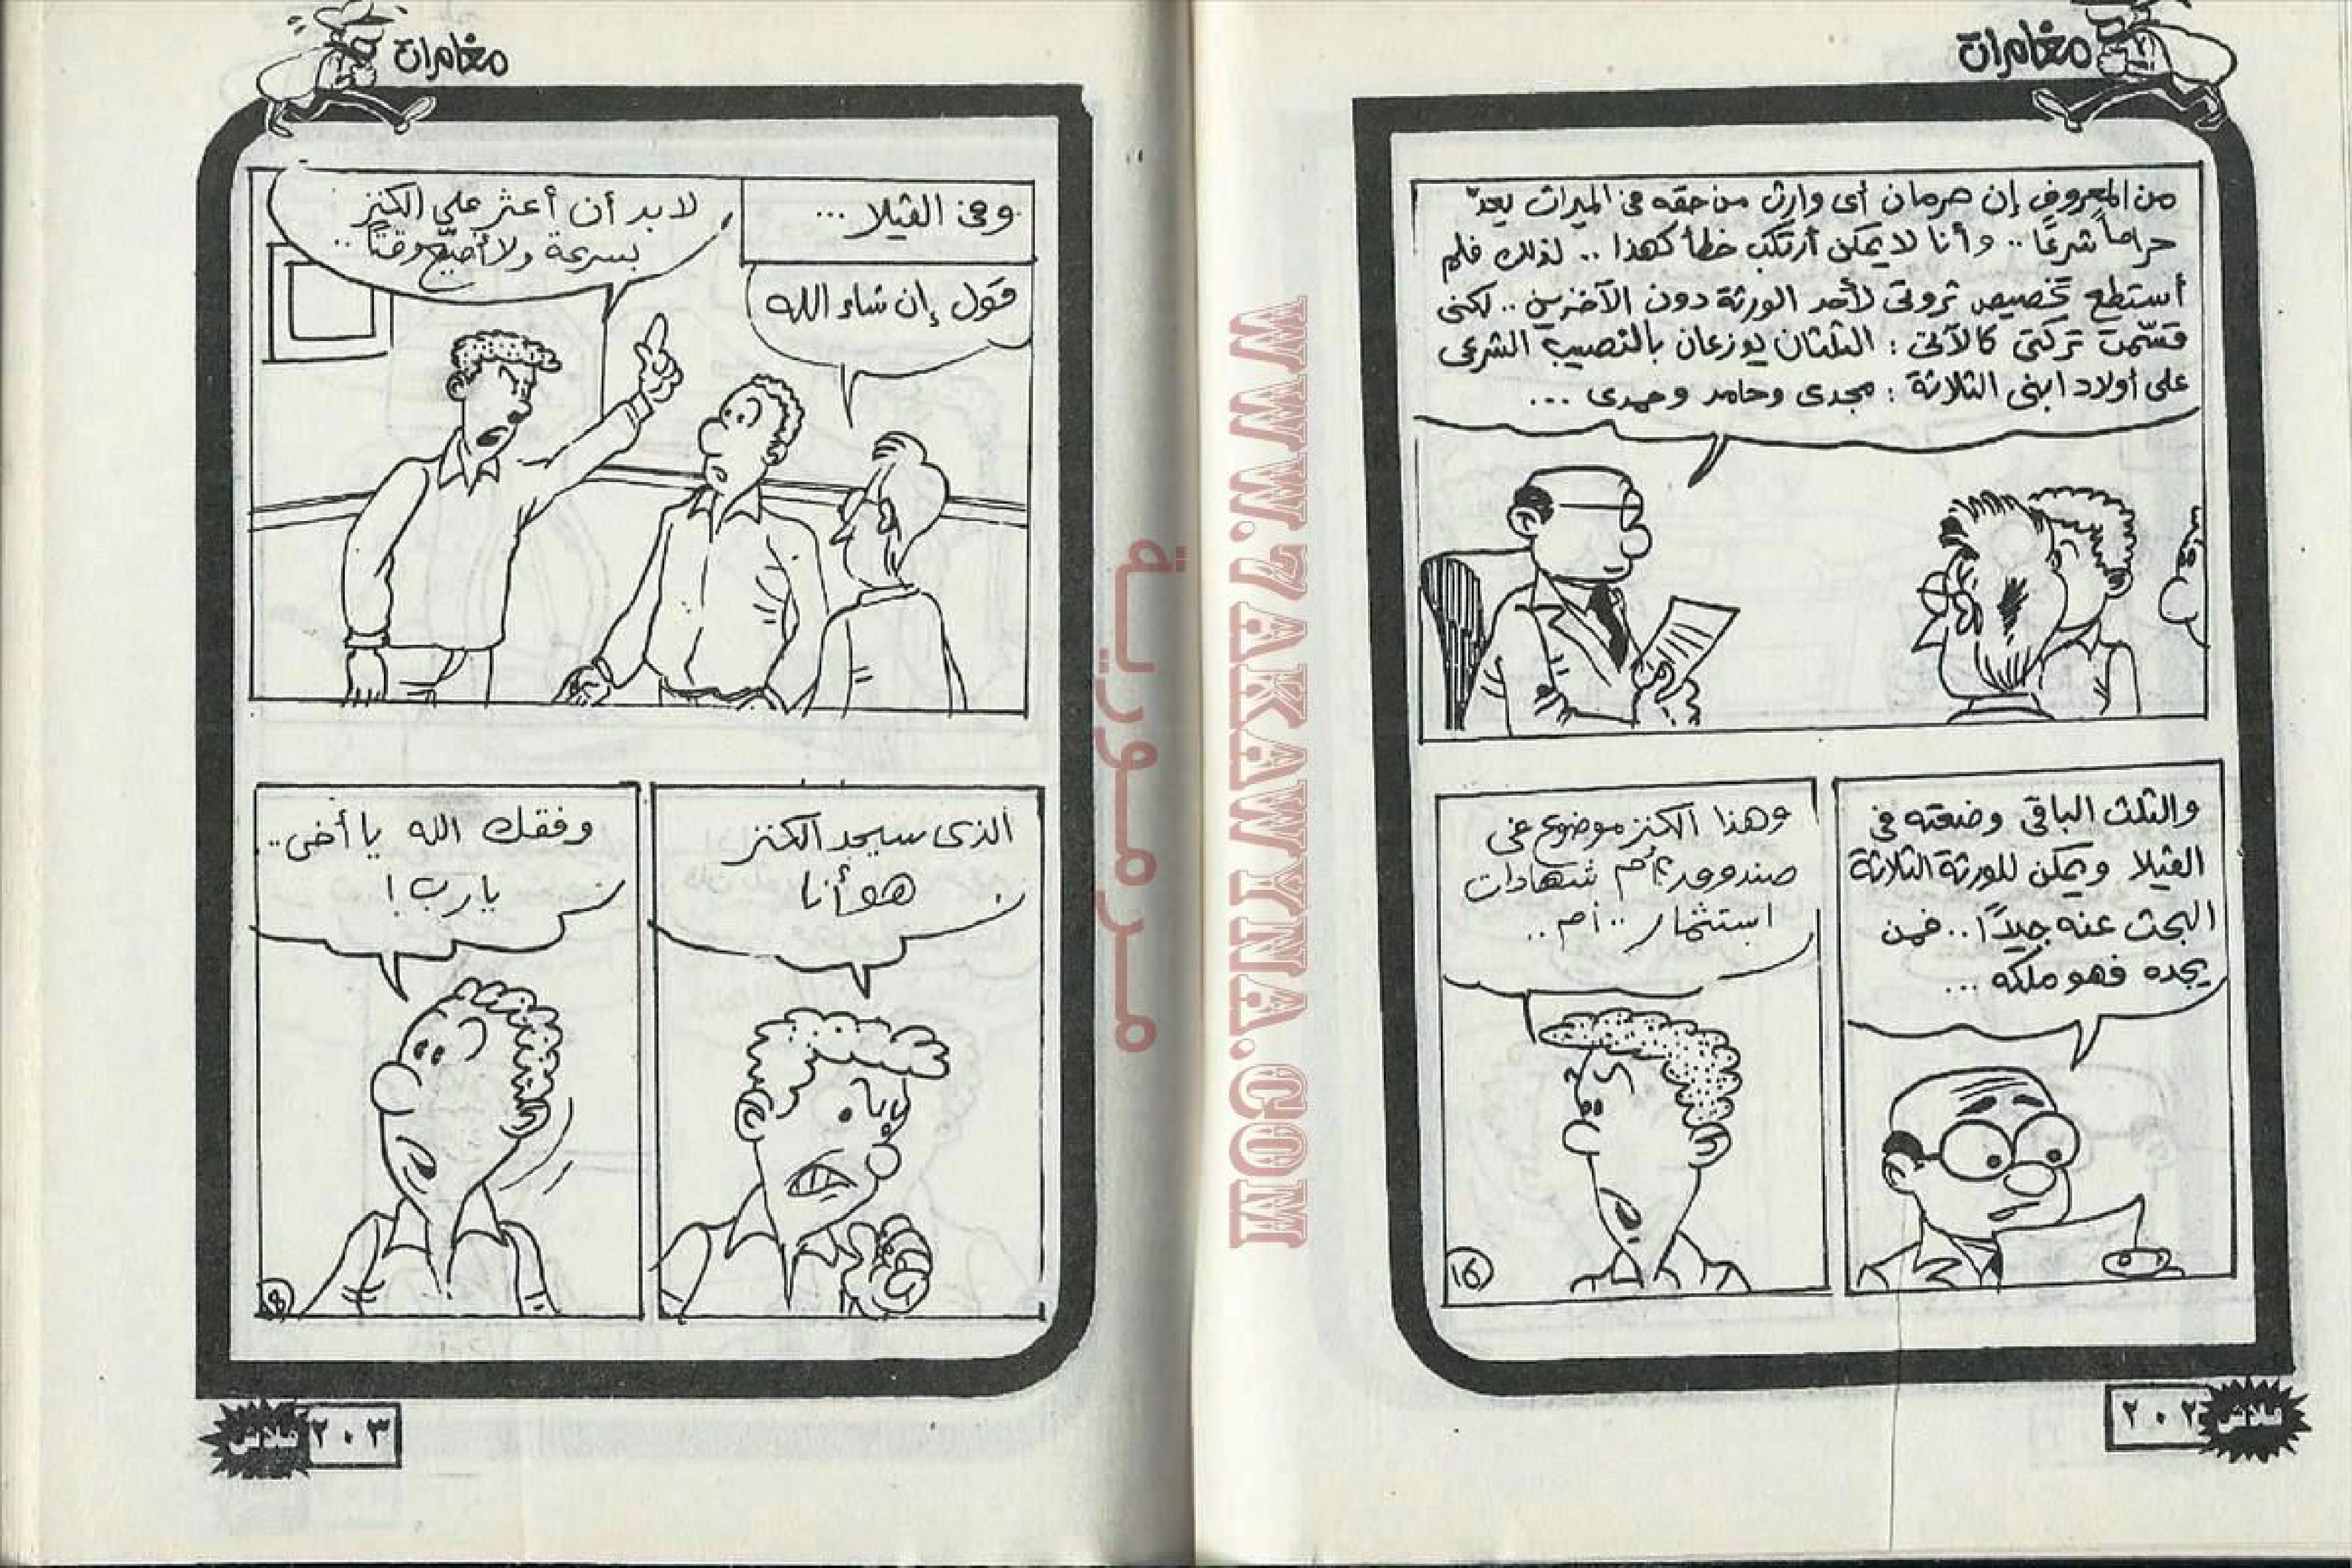 مغامرات
من المعروف إن حرمان أى وارث من حقه فى الميراث يعدّ
حراماً شرعًا .. وأنا لا يمكن أرتكب خطأ كهذا .. لذلك فلم
أستطع تخصيص ثروتى لأحد الورثة دون الآخرين .. لكنى
قسّمت تركتى كالآتى : الثلثان يوزعان بالنصيب الشرعى
على أولاد ابنى الثلاثة : مجدى وحامد وحمدى ...
والثلث الباقى وضعته فى
الڤيلا ويمكن للورثة الثلاثة
البحث عنه جيدًا .. فمن
يجده فهو ملكه ...
وهذا الكنز موضوع فى
صندوق ؟ أم شهادات
استثمار .. أم ..
١٦
٢٠٢
فلاش
مغامرات
وفى الڤيلا ...
لابد أن أعثر على الكنز
بسرعة ولا أضيّع وقتًا ..
قول إن شاء الله
الذى سيجد الكنز
هو أنا
وفقك الله يا أخى ..
يارب !
٢٠٣
فلاش
مرمورية
WWW.7AKAWYNA.COM